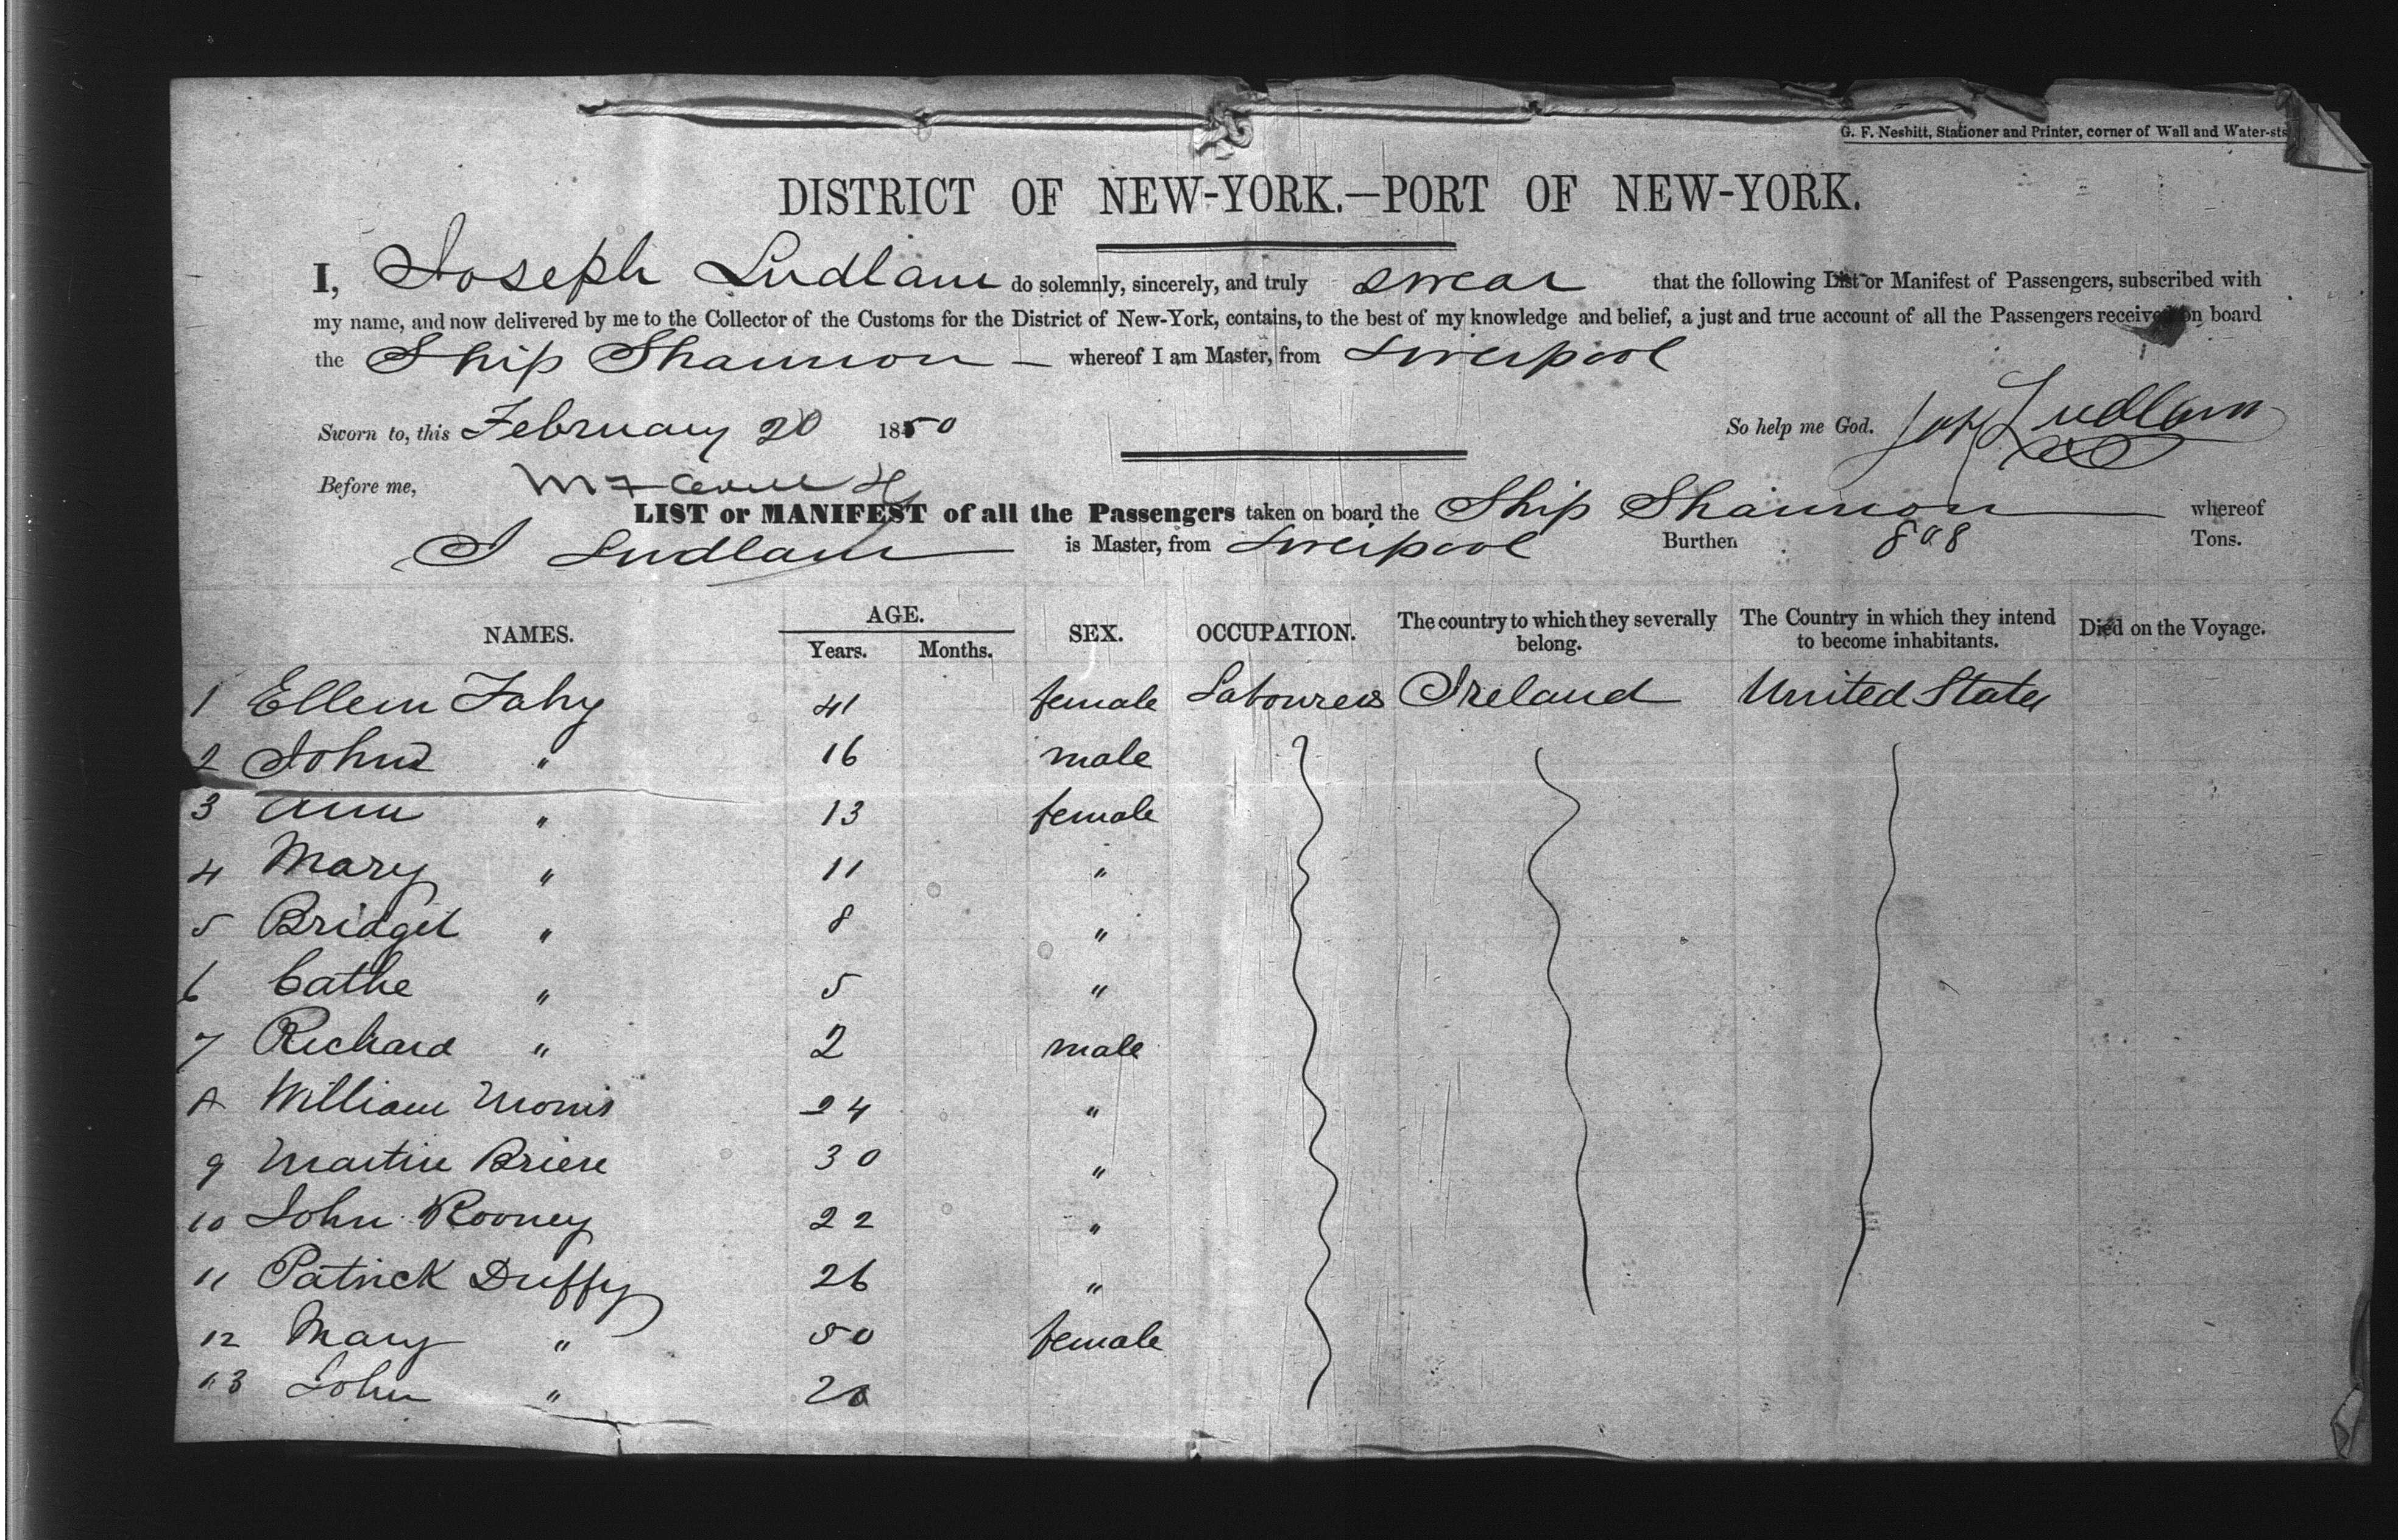 G. F. Nesbitt, Stationer and Printer, corner of Wall and Water-sts
DISTRICT OF NEW-YORK.—PORT OF NEW-YORK.
I, Joseph Ludlam do solemnly, sincerely, and truly swear that the following List or Manifest of Passengers, subscribed with
my name, and now delivered by me to the Collector of the Customs for the District of New-York, contains, to the best of my knowledge and belief, a just and true account of all the Passengers received on board
the Ship Shannon — whereof I am Master, from Liverpool
Sworn to, this February 20 1850 So help me God. Jos Ludlam
Before me,
LIST or MANIFEST of all the Passengers taken on board the Ship Shannon whereof
J Ludlam is Master, from Liverpool Burthen 808 Tons.
NAMES. AGE. Years. Months. SEX. OCCUPATION. The country to which they severally belong. The Country in which they intend to become inhabitants. Died on the Voyage.
1 Ellem Fahy 41 female Labourers Ireland United States
2 John " 16 male
3 Ann " 13 female
4 Mary " 11 "
5 Bridget " 8 "
6 Cathe " 5 "
7 Richard " 2 male
8 William Morris 24 "
9 Martin Briere 30 "
10 John Rooney 22 "
11 Patrick Duffy 26 "
12 Mary " 50 female
13 John " 20